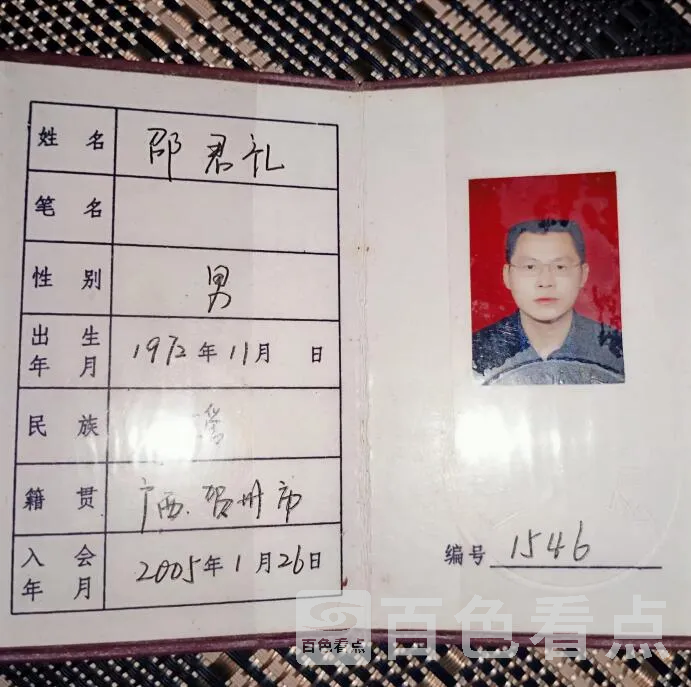 姓名 邵君礼
笔名
性别 男
出生年月 1972年11月 日
民族
籍贯 广西.贺州市
入会年月 2005年1月26日
编号 1546
百色看点
百色看点